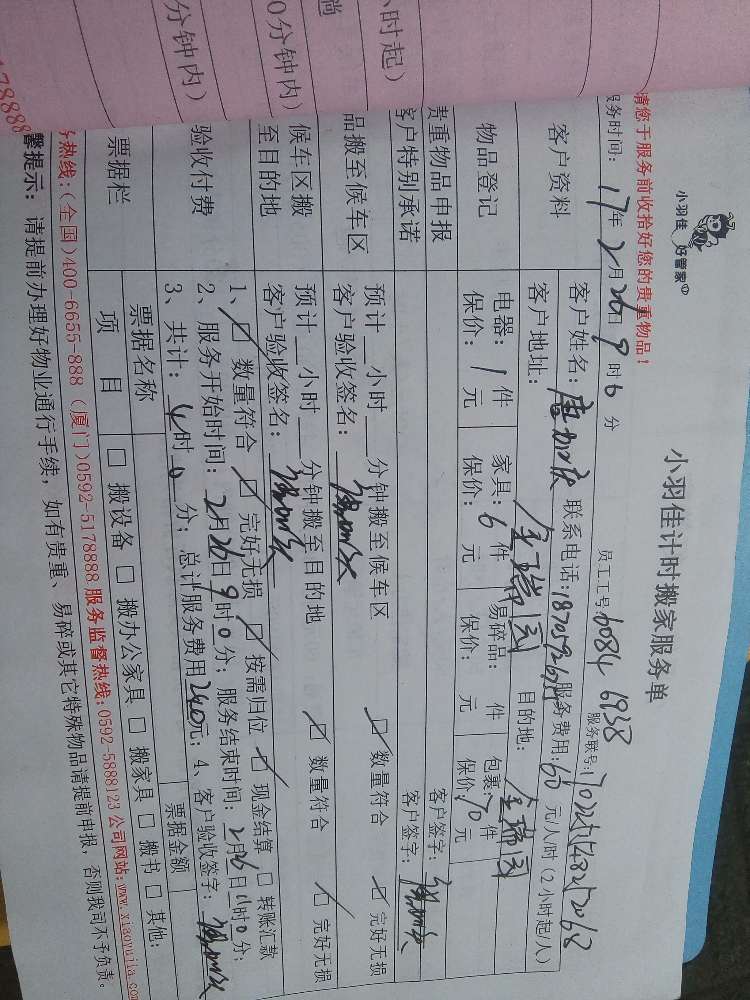 小羽佳 好管家
小羽佳计时搬家服务单
请您于服务前收拾好您的贵重物品！
员工工号: 6084 6938
服务时间: 17年2月26日9时 分
服务联号:
客户资料
客户姓名: 唐加庆 联系电话: 服务费用: 60 元/人/时（2小时起/人）
客户地址: 金瑞 目的地: 金瑞
物品登记
电器: 1 件 家具: 6 件 易碎品: 件 包裹: 70 件
保价: 元 保价: 元 保价: 元 保价: 元
贵重物品申报
客户签字:
客户特别承诺
客户签字:
品搬至候车区
预计 小时 分钟搬至候车区 ☑ 数量符合 ☑ 完好无损
客户验收签名:
候车区搬至目的地
预计 小时 分钟搬至目的地 ☑ 数量符合 ☑ 完好无损
客户验收签名:
验收付费
1、☑ 数量符合 ☑ 完好无损 ☑ 按需归位 ☑ 现金结算 □ 转账汇款
2、服务开始时间: 2月26日9时0分; 服务结束时间: 2月26日11时0分;
3、共计: 4时0分; 总计服务费用240元; 4、客户验收签字:
票据栏
票据名称 票据金额
项 目 □ 搬设备 □ 搬办公家具 □ 搬家具 □ 搬书 □ 其他:
务热线:(全国)400-6655-888 (厦门)0592-5178888 服务监督热线:0592-5888123 公司网站:www.xiaoyujia.com
馨提示: 请提前办理好物业通行手续，如有贵重、易碎或其它特殊物品请提前申报，否则我司不予负责。
小时起）
0分钟内）
分钟内）
178888